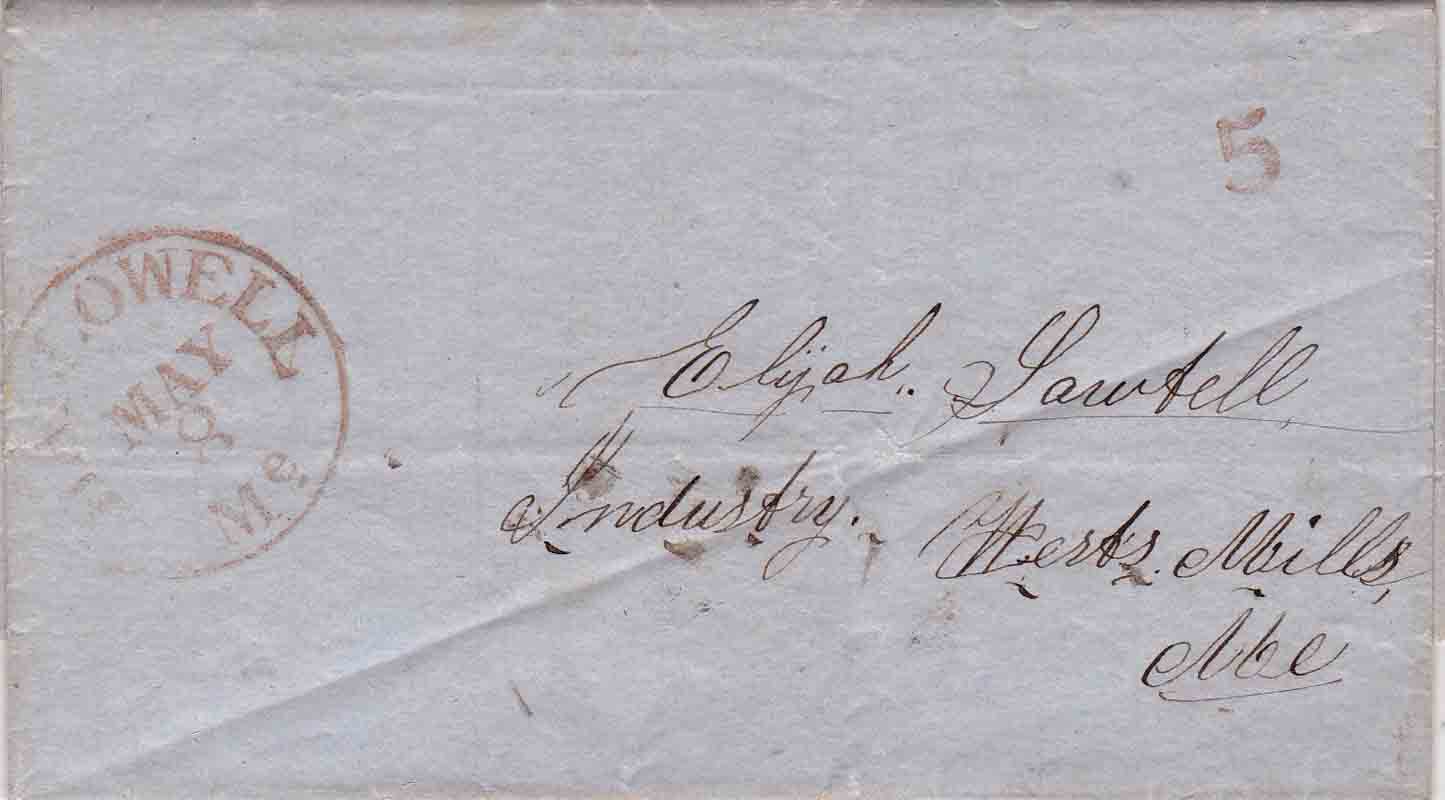 5
HALLOWELL
MAY
9
Me.
Elijah. Sawtell
Industry. West's Mills,
Me